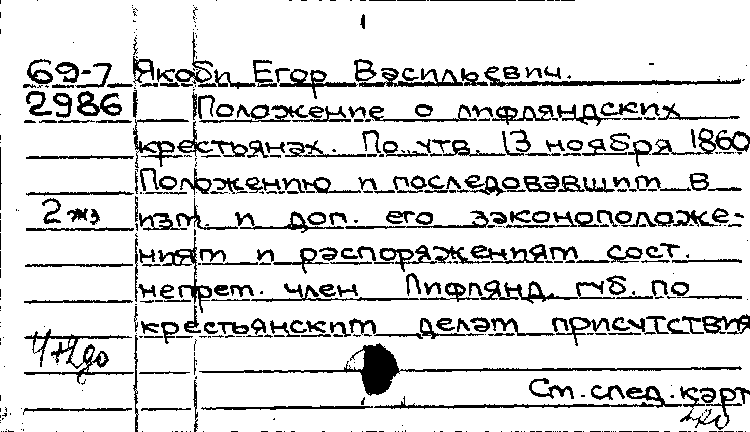 69-7 Якоби Егор Васильевич.
2986 Положение о лифляндских
крестьянах. По утв. 13 ноября 1860
Положению и последовавшим в
2 экз изм. и доп. его законоположе-
ниям и распоряжениям сост.
непрем. член Лифлянд. губ. по
крестьянским делам присутствия
Ст. след. карт